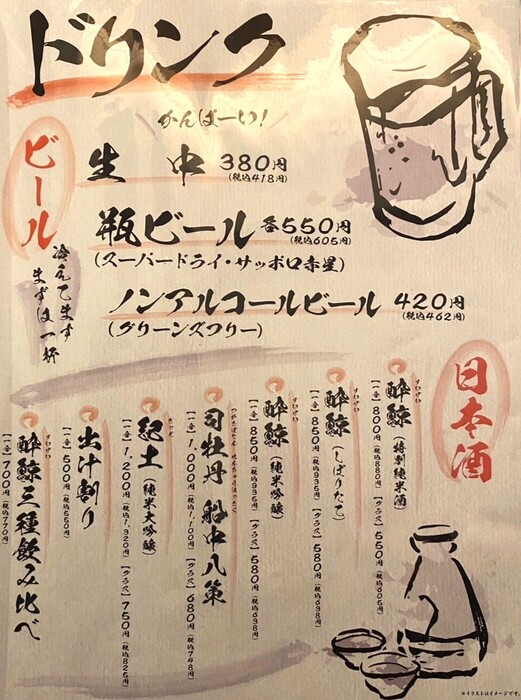 ドリンク
かんぱーい!
ビール
冷えてます
まずは一杯
生 中 380円
(税込418円)
瓶ビール 各550円
(税込605円)
(スーパードライ・サッポロ赤星)
ノンアルコールビール 420円
(税込462円)
(グリーンズフリー)
日本酒
酔鯨 (特別純米酒)
【一合】800円(税込880円)【グラス】550円(税込605円)
酔鯨 (しぼりたて)
【一合】850円(税込935円)【グラス】580円(税込638円)
酔鯨 (純米吟醸)
【一合】850円(税込935円)【グラス】580円(税込638円)
司牡丹 船中八策
【一合】1,000円(税込1,100円)【グラス】680円(税込748円)
紀土 (純米大吟醸)
【一合】1,200円(税込1,320円)【グラス】750円(税込825円)
出汁割り
【一合】500円(税込550円)
酔鯨三種飲み比べ
【一合】700円(税込770円)
※イラストはイメージです。